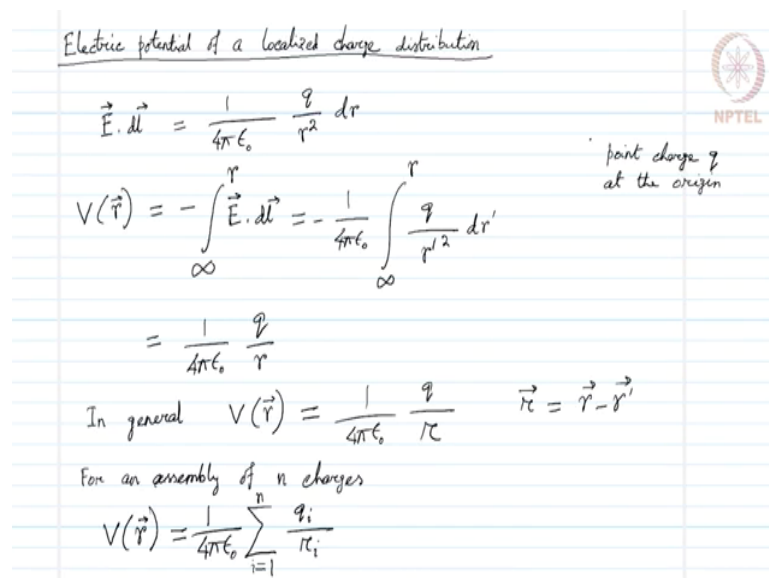 Electric potential of a localized charge distribution
NPTEL
E⃗ . dl⃗ = 1/4πϵ₀ q/r² dr
point charge q
at the origin
V(r⃗) = - ∫_∞^r E⃗ . dl⃗ = - 1/4πϵ₀ ∫_∞^r q/r'² dr'
= 1/4πϵ₀ q/r
In general V(r⃗) = 1/4πϵ₀ q/𝓇 𝓇⃗ = r⃗ - r⃗'
For an assembly of n charges
V(r⃗) = 1/4πϵ₀ ∑_{i=1}^n q_i/𝓇_i